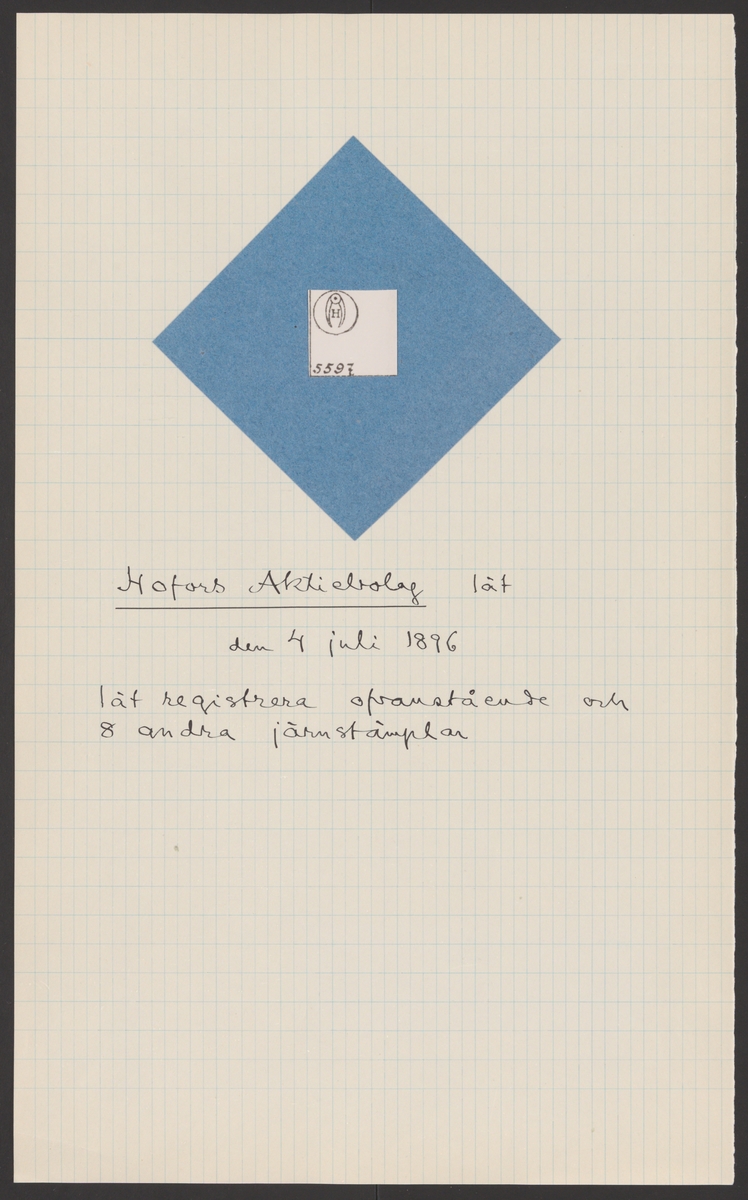 H
5597
Hofors Aktiebolag lät
den 4 juli 1896
lät registrera ofvanstående och
8 andra järnstämplar